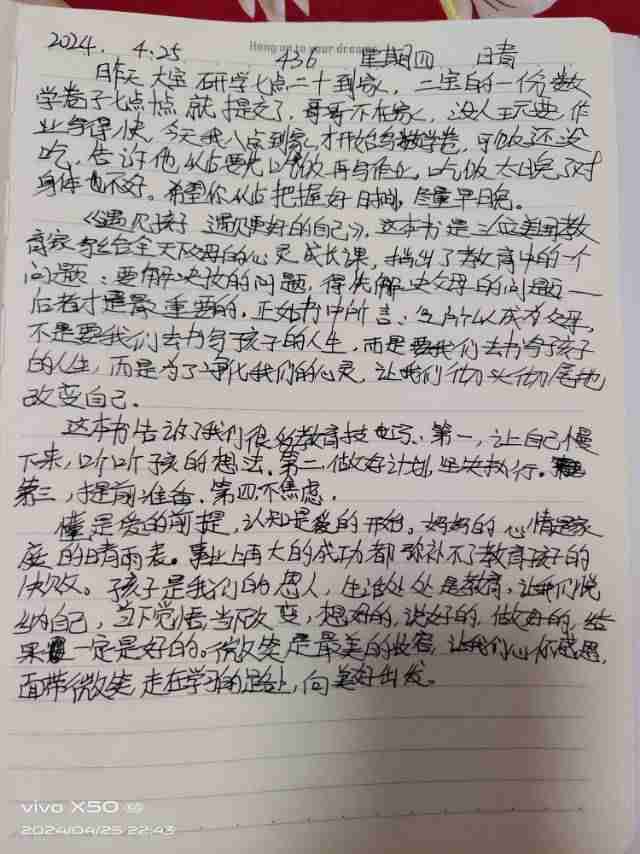 Hang on to your dreams
2024. 4.25 436 星期四 晴
昨天大宝研学七点二十到家，二宝的一份数
学卷子七点十点就提交了，哥哥不在家，没人玩耍，作
业写得快，今天我八点到家，才开始写数学卷，可饭还没
吃，告诉他以后要先吃饭再写作业，吃饭太晚了对
身体也不好。希望你以后把握好时间，尽量早日完。
《遇见孩子 遇见更好的自己》，这本书是三位美国教
育家写给全天下父母的心灵成长课，指出了教育中的一个
问题：要解决孩的问题，得先解决父母的问题——
后者才是最重要的，正如书中所言：之所以成为父母，
不是要我们去书写孩子的人生，而是要我们去书写孩子
的人生，而是为了净化我们的心灵，让我们彻头彻尾地
改变自己.
这本书告诉了我们很多教育技巧：第一，让自己慢
下来，听听孩的想法.第二,做好计划,坚决执行。
第三，提前准备.第四,不焦虑.
懂是爱的前提，认知是爱的开始。妈妈的心情是家
庭的晴雨表。事业上再大的成功都弥补不了教育孩子的
缺败。孩子是我们的恩人，生活处处是教育，让我们悦
纳自己，当下觉悟,当下改变，想好的,说好的,做好的,结
果一定是好的。微笑是最美的妆容，让我们心怀感恩,
面带微笑,走在学习的路上,向美好出发。
vivo X50
2024/04/25 22:43